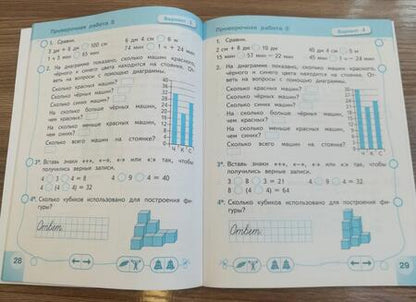 Проверочная работа
Вариант
1. Сравни.
3 дм + 8 дм 100 см 6 дм 4 см 6 м
1 ч 5 мин 65 мин 74 мин 1 ч + 24 мин
2. На диаграмме показано, сколько машин красного,
чёрного и синего цвета находится на стоянке. От-
веть на вопросы с помощью диаграммы.
Сколько красных машин?
Сколько чёрных машин?
Сколько синих машин?
На сколько больше чёрных машин,
чем красных?
На сколько меньше красных машин,
чем синих?
Сколько всего машин на стоянке?
Ч К С
3*. Вставь знаки «+», «–», «·» или «:» так, чтобы
получились верные записи.
4 3 4 = 8 4 9 4 = 40
4 (4 4) = 32
4*. Сколько кубиков использовано для построения фи-
гуры?
Ответ
28
Проверочная работа
Вариант
1. Сравни.
2 см + 8 дм 10 дм 40 дм 4 см 5 м
15 мин 57 мин – 22 мин 45 мин 1 ч – 24 мин
2. На диаграмме показано, сколько машин красного,
чёрного и синего цвета находится на стоянке. От-
веть на вопросы с помощью диаграммы.
Сколько красных машин?
Сколько чёрных машин?
Сколько синих машин?
На сколько больше чёрных машин,
чем красных?
На сколько меньше красных машин,
чем синих?
Сколько всего машин на стоянке?
Ч К С
3*. Вставь знаки «+», «–», «·» или «:» так, чтобы
получились верные записи.
3 8 3 = 21 4 9 4 = 32
8 (4 4) = 64
4*. Сколько кубиков использовано для построения фи-
гуры?
Ответ
29